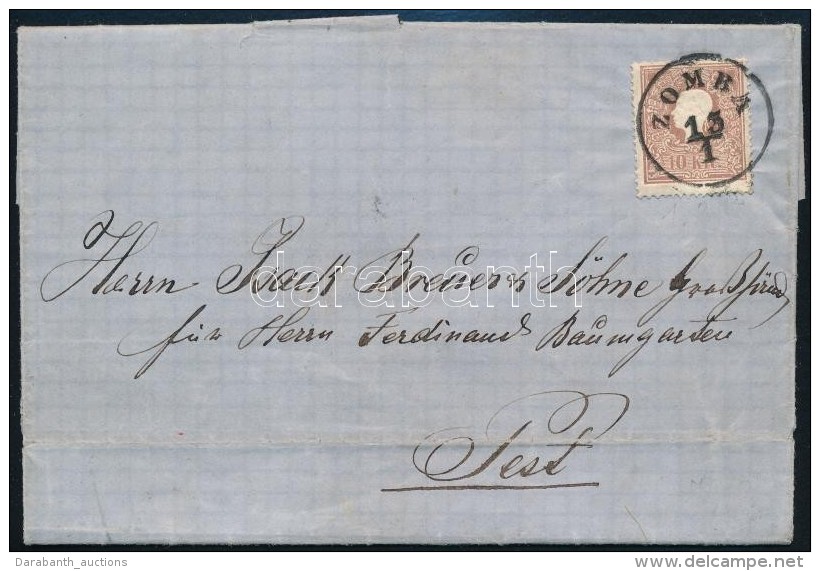 ZOMBA
13
1
10 KR
Herrn Isack Breuer & Söhne
für Herrn Ferdinand Baumgarten
Pest
darabanth
Darabanth_auctions
www.delcampe.net